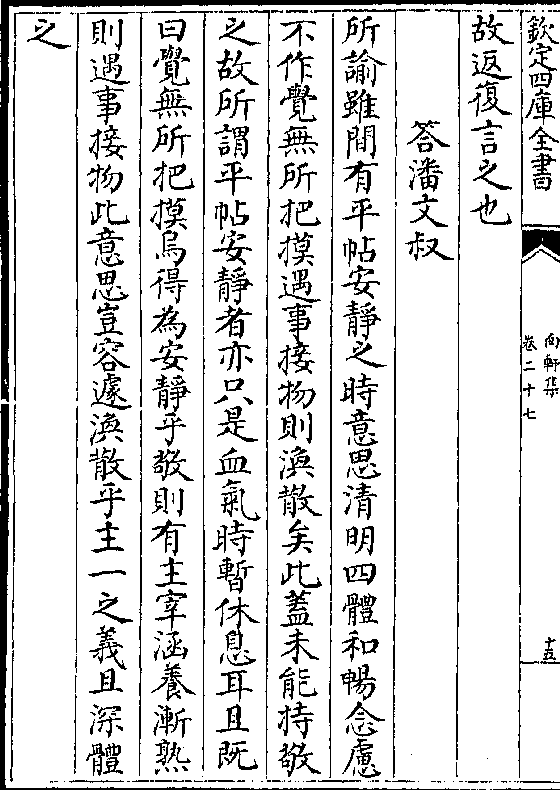 欽定四庫全書
南軒集
卷二十七
十五
故返復言之也
答潘文叔
所諭雖間有平帖安靜之時意思清明四體和暢念慮
不作覺無所把摸遇事接物則渙散矣此蓋未能持敬
之故所謂平帖安靜者亦只是血氣時暫休息耳且既
曰覺無所把摸烏得為安靜乎敬則有主宰涵養漸熟
則遇事接物此意思豈容遽渙散乎主一之義且深體
之